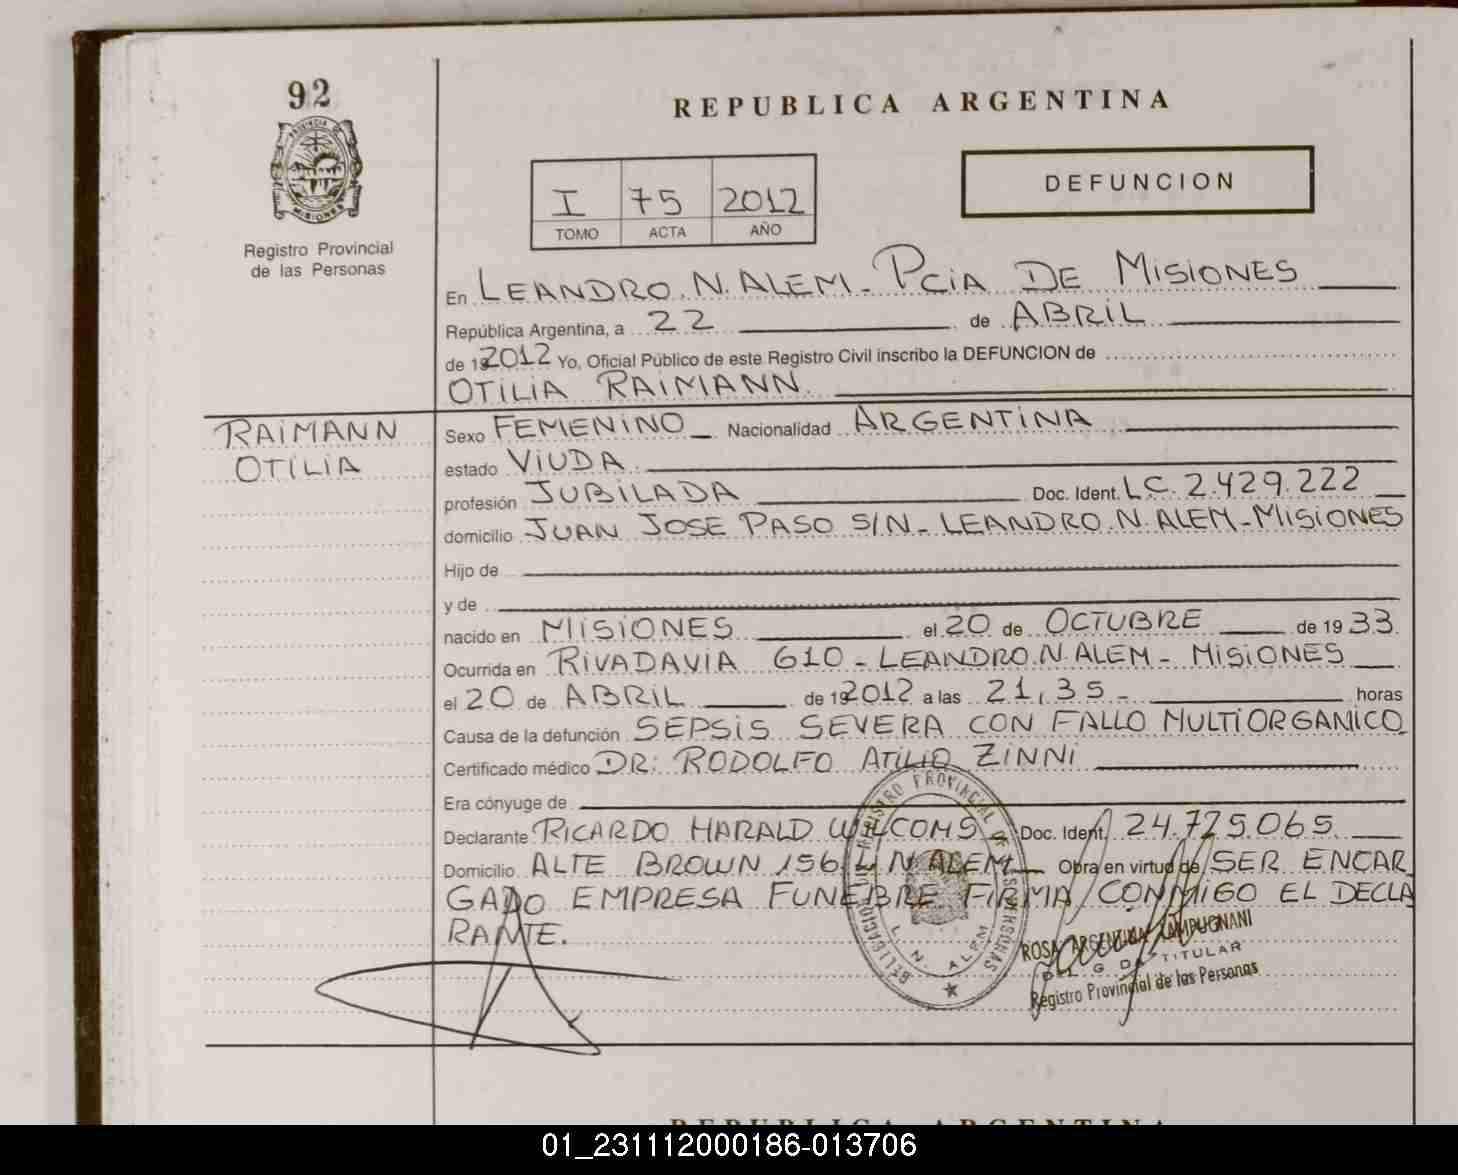 92
PROVINCIA DE
MISIONES
Registro Provincial
de las Personas
REPUBLICA ARGENTINA
I 75 2012
TOMO ACTA AÑO
DEFUNCION
En LEANDRO.N.ALEM_ PCiA DE MiSiONES
República Argentina, a 22 de ABRiL
de 192012 Yo, Oficial Público de este Registro Civil inscribo la DEFUNCION de
OTiLiA RAiMANN.
RAiMANN
OTiLiA
Sexo FEMENiNO_ Nacionalidad ARGENTiNA
estado ViUDA.
profesión JUBiLADA Doc. Ident. L.C. 2.429.222
domicilio JUAN JOSE PASO S/N_ LEANDRO.N.ALEM_MiSiONES
Hijo de
y de
nacido en MiSiONES el 20 de OCTUBRE de 19 33.
Ocurrida en RiVADAViA 610_LEANDRO.N.ALEM_ MiSiONES
el 20 de ABRiL de 192012 a las 21,35- horas
Causa de la defunción SEPSiS SEVERA CON FALLO MULTiORGANiCO
Certificado médico DR: RODOLFO ATiLiO ZiNNi
Era cónyuge de
Declarante RiCARDO HARALD WiLCOMS Doc. Ident. 24.725.065.
Domicilio ALTE BROWN 156 L N ALEM Obra en virtud de SER ENCAR
GADO EMPRESA FUNEBRE FiRMA CONMiGO EL DECLA
RANTE.
REGISTRO PROVINCIAL DE LAS PERSONAS
L. N. ALEM
ROSA ARGENTINA
TITULAR
Registro Provincial de las Personas
REPUBLICA ARGENTINA
01_231112000186-013706